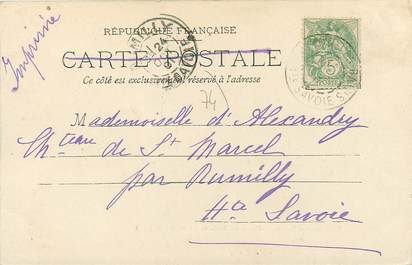 RÉPUBLIQUE FRANÇAISE
CARTE POSTALE
Ce côté est exclusivement réservé à l'adresse
Imprimé
5
74
Mademoiselle d'Alexandry
Ch.teau de St Marcel
par Rumilly
Hte Savoie